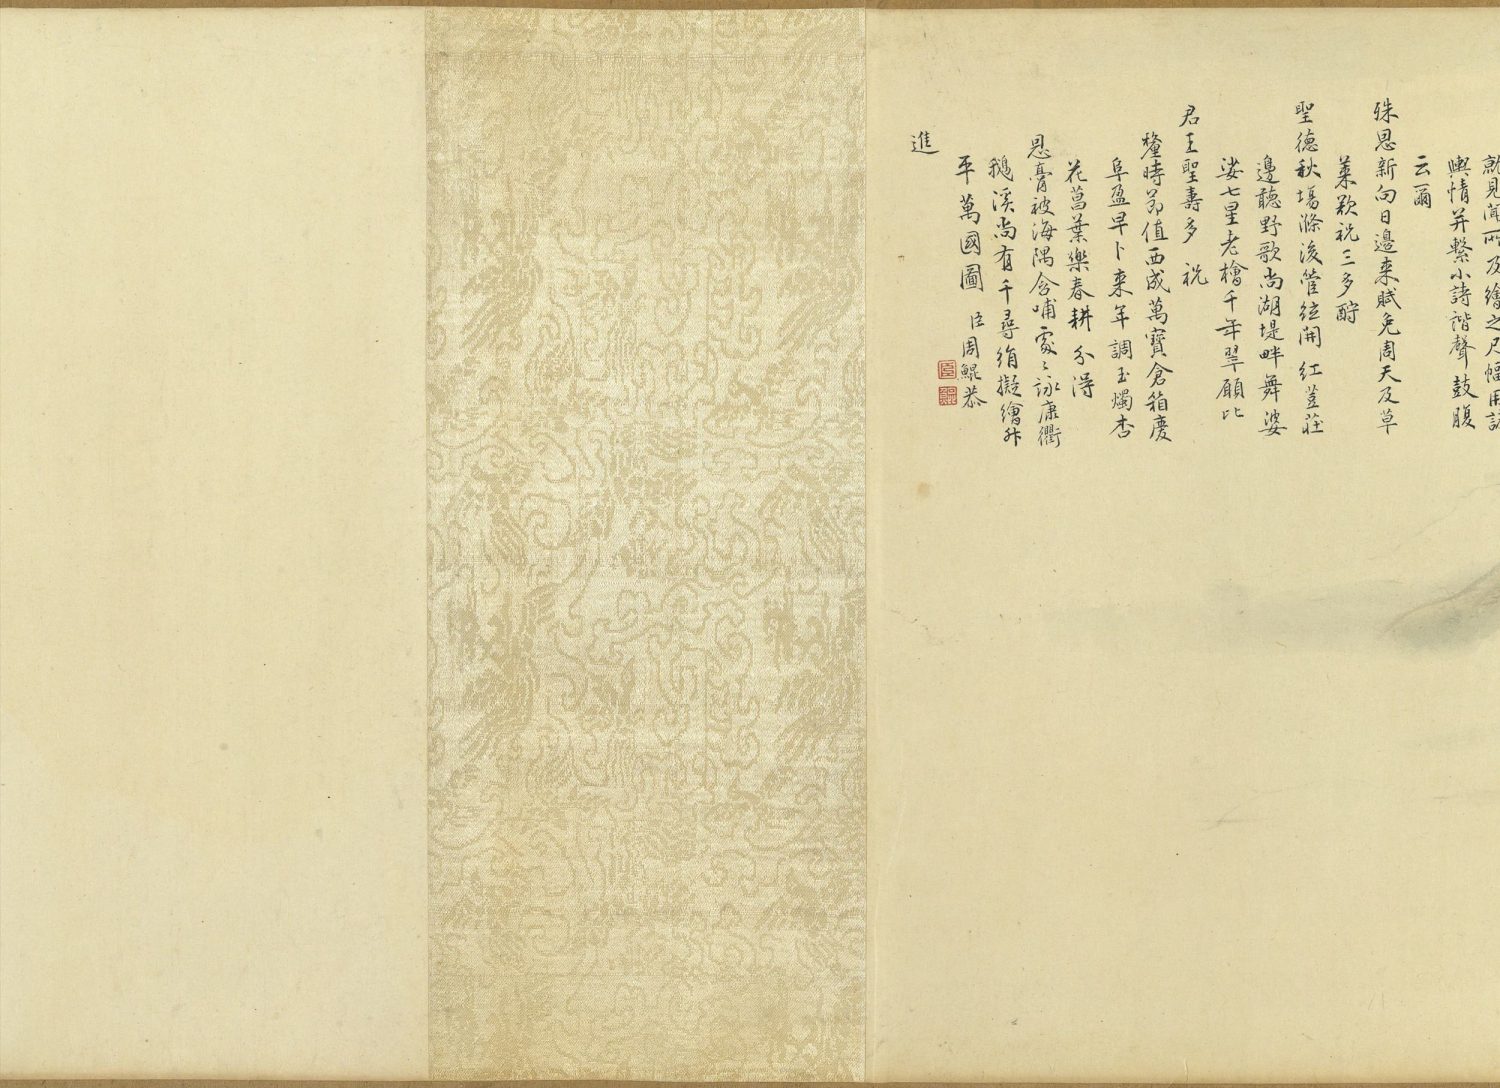 就見聞所及繪之尺幅用誌
輿情并繫小詩諧聲鼓腹
云爾
殊恩新向日邊來賦免周天及草
萊歡祝三多酹
聖德秋場滌後管絃開 紅荳莊
邊聽野歌尚湖堤畔舞婆
娑七星老檜千年翠願比
君王聖壽多 祝
釐時節值西成萬寶倉箱慶
阜盈早卜來年調玉燭杏
花菖葉樂春耕 分得
恩膏被海隅含哺處〻詠康衢
鵝溪尚有千尋絹擬繪昇
平萬國圖 臣周鯤恭
進
臣
鯤